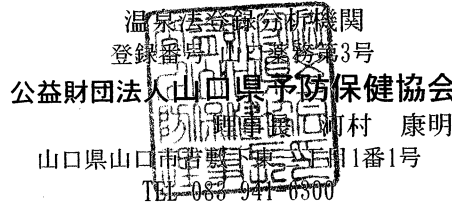 温泉法登録分析機関
登録番号 山口薬務第3号
公益財団法人山口県予防保健協会
理事長 河村 康明
山口県山口市吉敷下東 丁目1番1号
TEL 083 941 6300